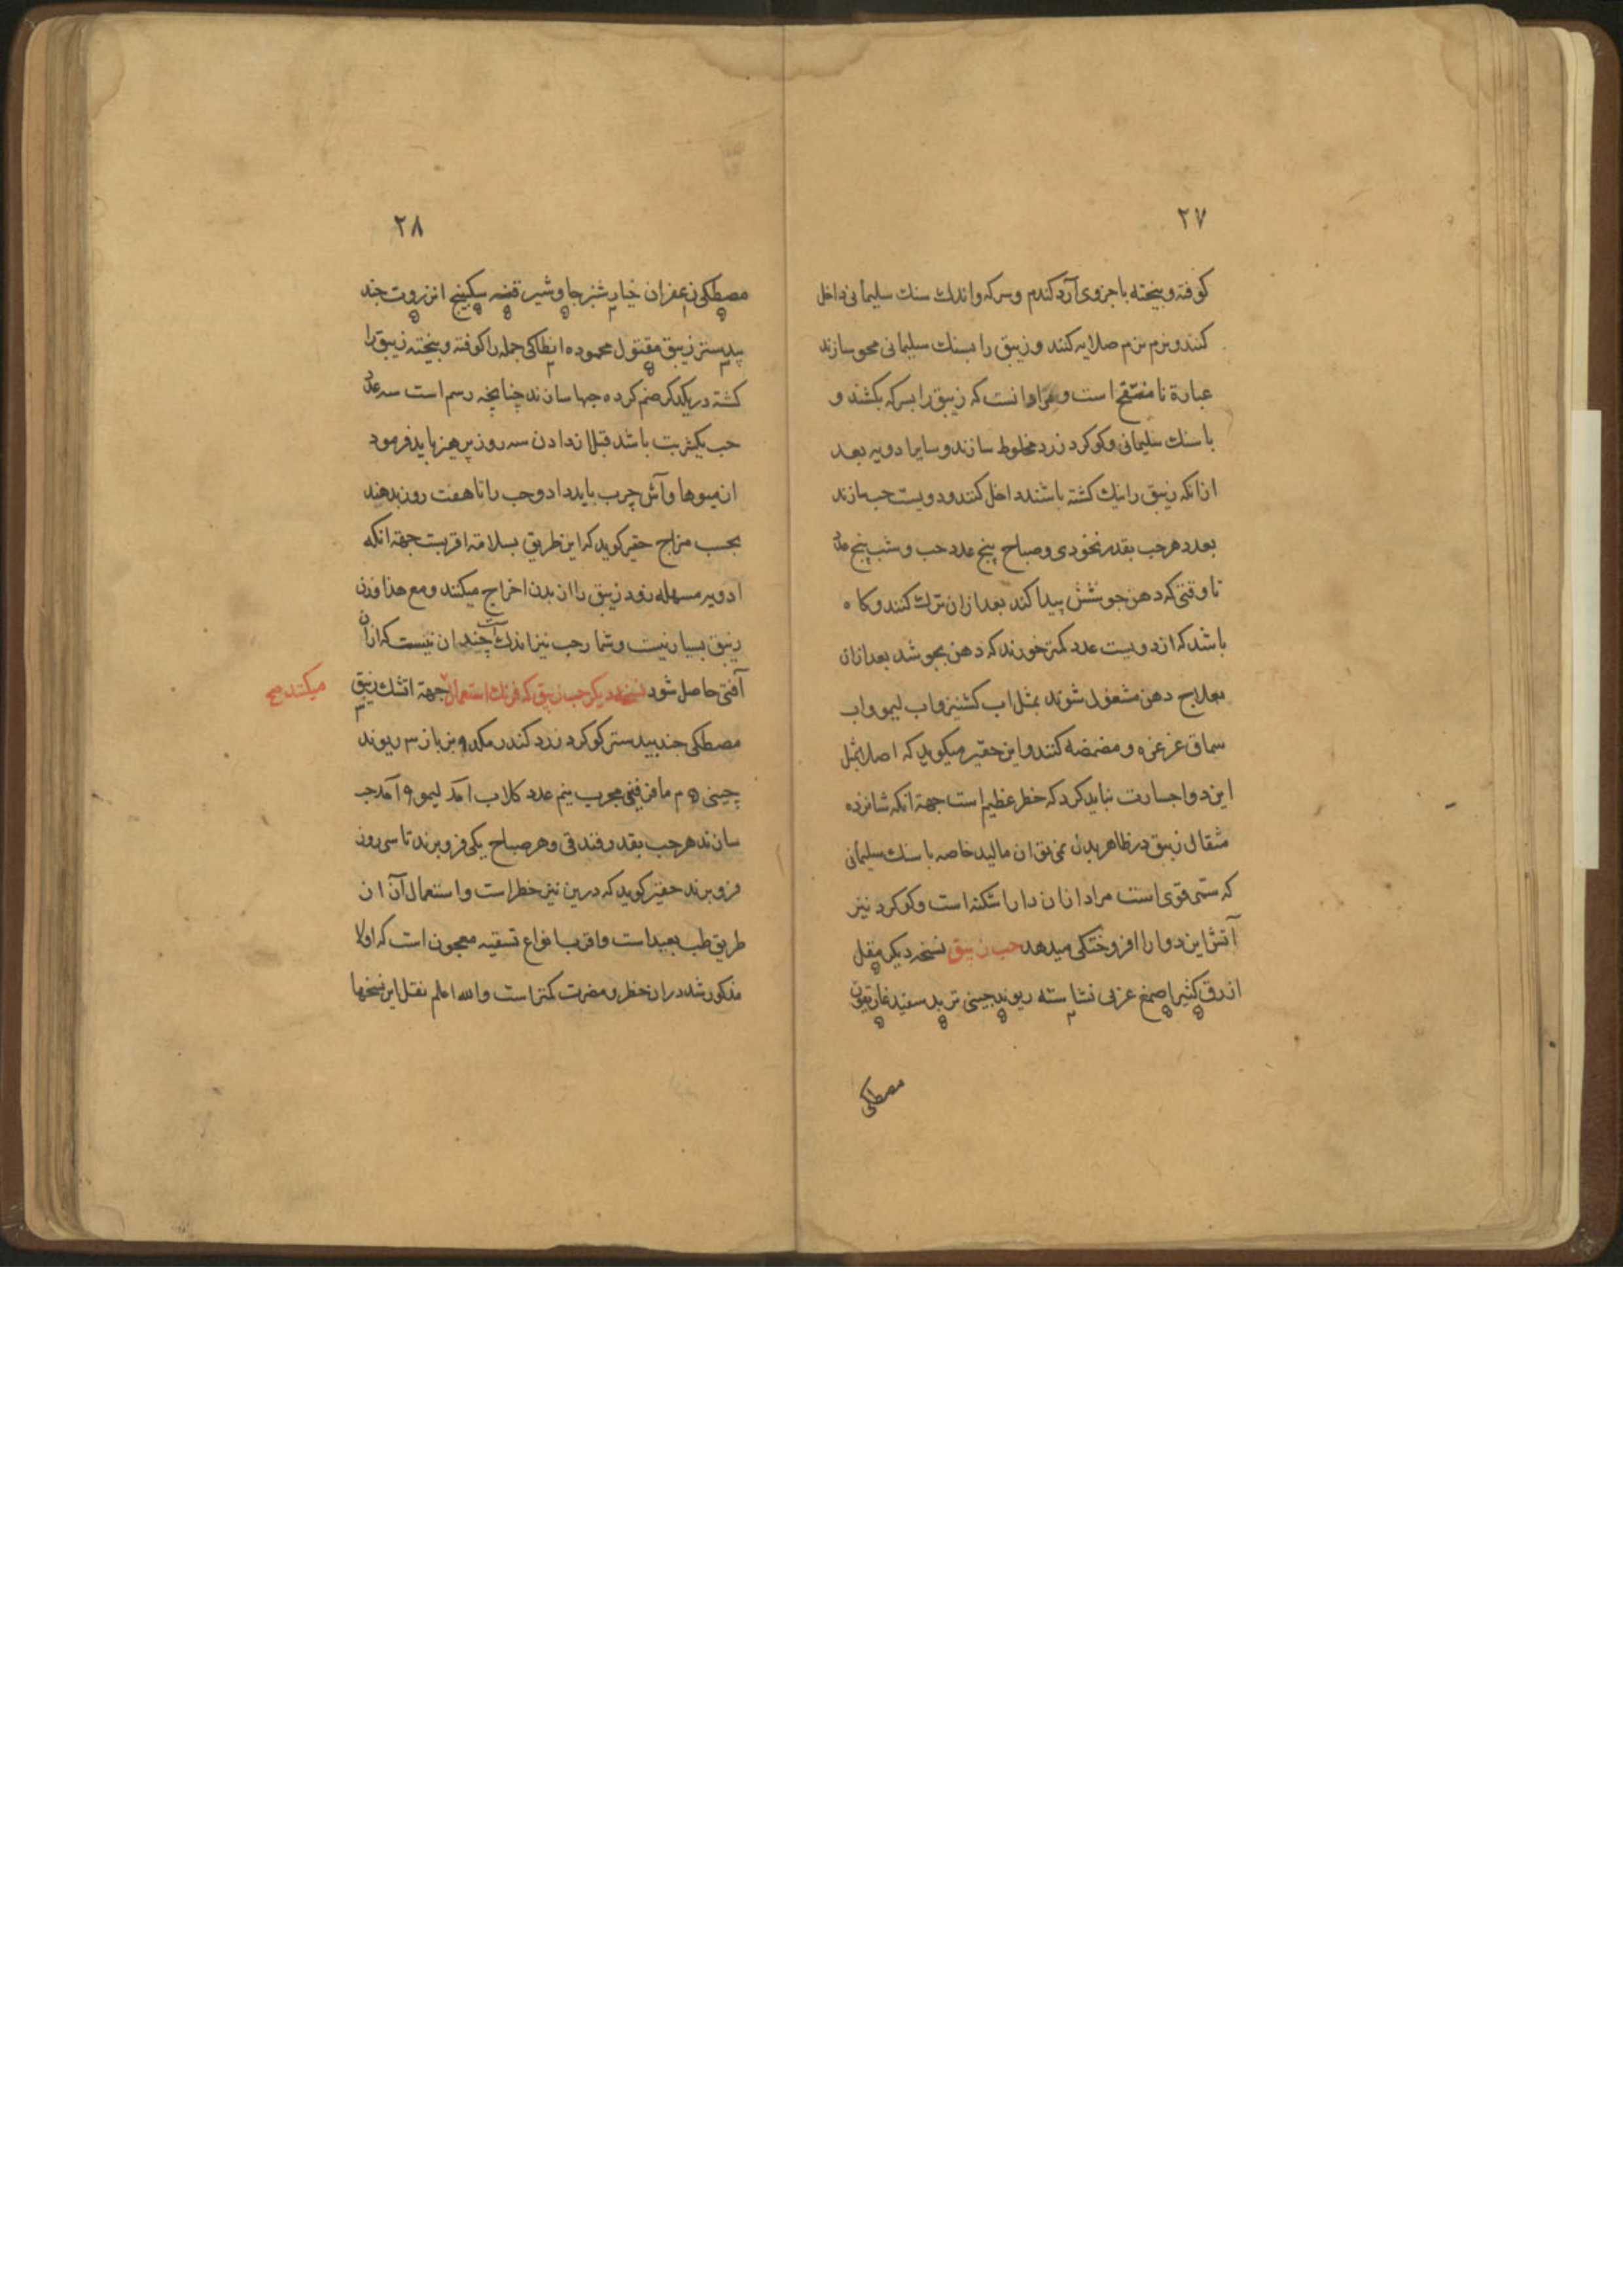 ۲۷
کوفته و بیخته با جزوی آرد کندم و سرکه و اندک سنک سلیمانی داخل
کنند و نرم نرم صلایه کنند و زیبق را بسنک سلیمانی محو سازند
عبارة نا منقح است و مراد انست که زیبق را بسرکه بکشند و
با سنک سلیمانی و کوکرد زرد مخلوط سازند و سایر ادویه بعد
ازانکه زیبق را نیک کشته باشند داخل کنند و دویست حب سازند
بعدد هر حب بقدر نخودی و صباح پنج عدد حب و شب پنج عدد
تا وقتی که دهن جوشش پیدا کند بعد ازان ترک کنند و کاه
باشد که از دویست عدد کمتر خورند که دهن بجوشد بعد ازان
بعلاج دهن مشغول شوند بمثل اب کشنیز و اب لیمو و اب
سماق غرغره و مضمضه کنند و این حقیر میکوید که اصلا بمثل
این دوا جسارت نباید کرد که خطر عظیم است جهة انکه شانزده
مثقال زیبق در ظاهر بدن نمی توان مالید خاصه با سنک سلیمانی
که ستمی قوی است مراد ازان دارا شکنه است و کوکرد نیز
آتش این دوا را افروختکی میدهد حب زیبق نسخه دیکر مقل
ازرق کثیرا صمغ عربی نشاسته ریوند چینی تربد سفید غاریقون
مصطکی
۲۸
مصطکی زعفران خیار شنبر جاوشیر قنه سکبینج انزروت جند
بیدستر زیبق مقتول محموده انطاکی جمله را کوفته و بیخته زیبق را
کشته در یکدکر ضم کرده حبها سازند چنانچه رسم است سه عدد
حب یکشربت باشد قبل از دادن سه روز پرهیز باید فرمود
از میوها و آش چرب باید داد و حب را تا هفت روز بدهند
بحسب مزاج حقیر کوید که این طریق بسلامة اقربست جهة انکه
ادویه مسهله زود زیبق را از بدن اخراج میکنند و مع هذا وزن
زیبق بسیار نیست و شمار حب نیز اندک است چندان نیست که ازان
آفتی حاصل شود نسخه دیکر حب زیبق که فرنک استعمال میکنند صح جهة اتشک زیبق
مصطکی جند بیدستر کوکرد زرد کندر
چینی کلاب لیمو حب
سازند هر حب بقدر فندقی و هر صباح یکی فرو برند تا سی روز
فرو برند حقیر کوید که درین نیز خطر است و استعمال آن از
طریق طب بعید است و اقرب انواع تسقیه معجون است که اولا
مذکور شد دران خطر و مضرت کمتر است و الله اعلم نقل این نسخها